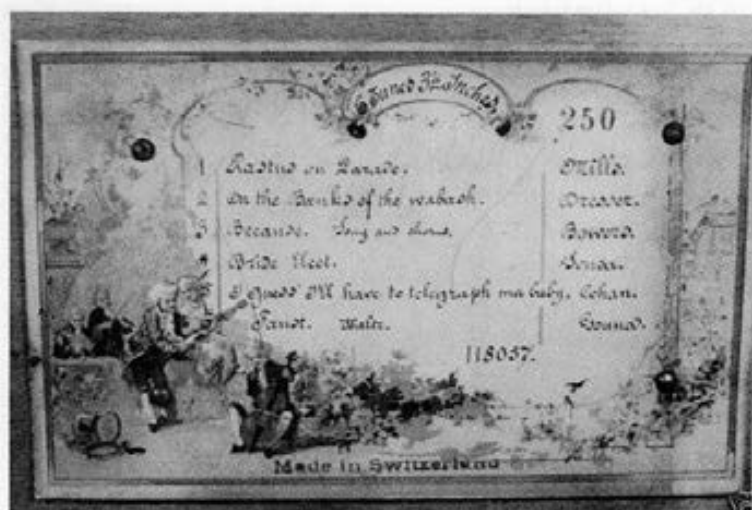 6 Tunes
250
1 Rastus on Parade. Mills.
2 On the Banks of the wabash. Dresser.
3 Because. Song and chorus. Bowers.
4 Bride Elect. Sousa.
I guess I'll have to telegraph ma baby. Cohan.
6 Faust. Waltz. Gounod.
118057.
Made in Switzerland